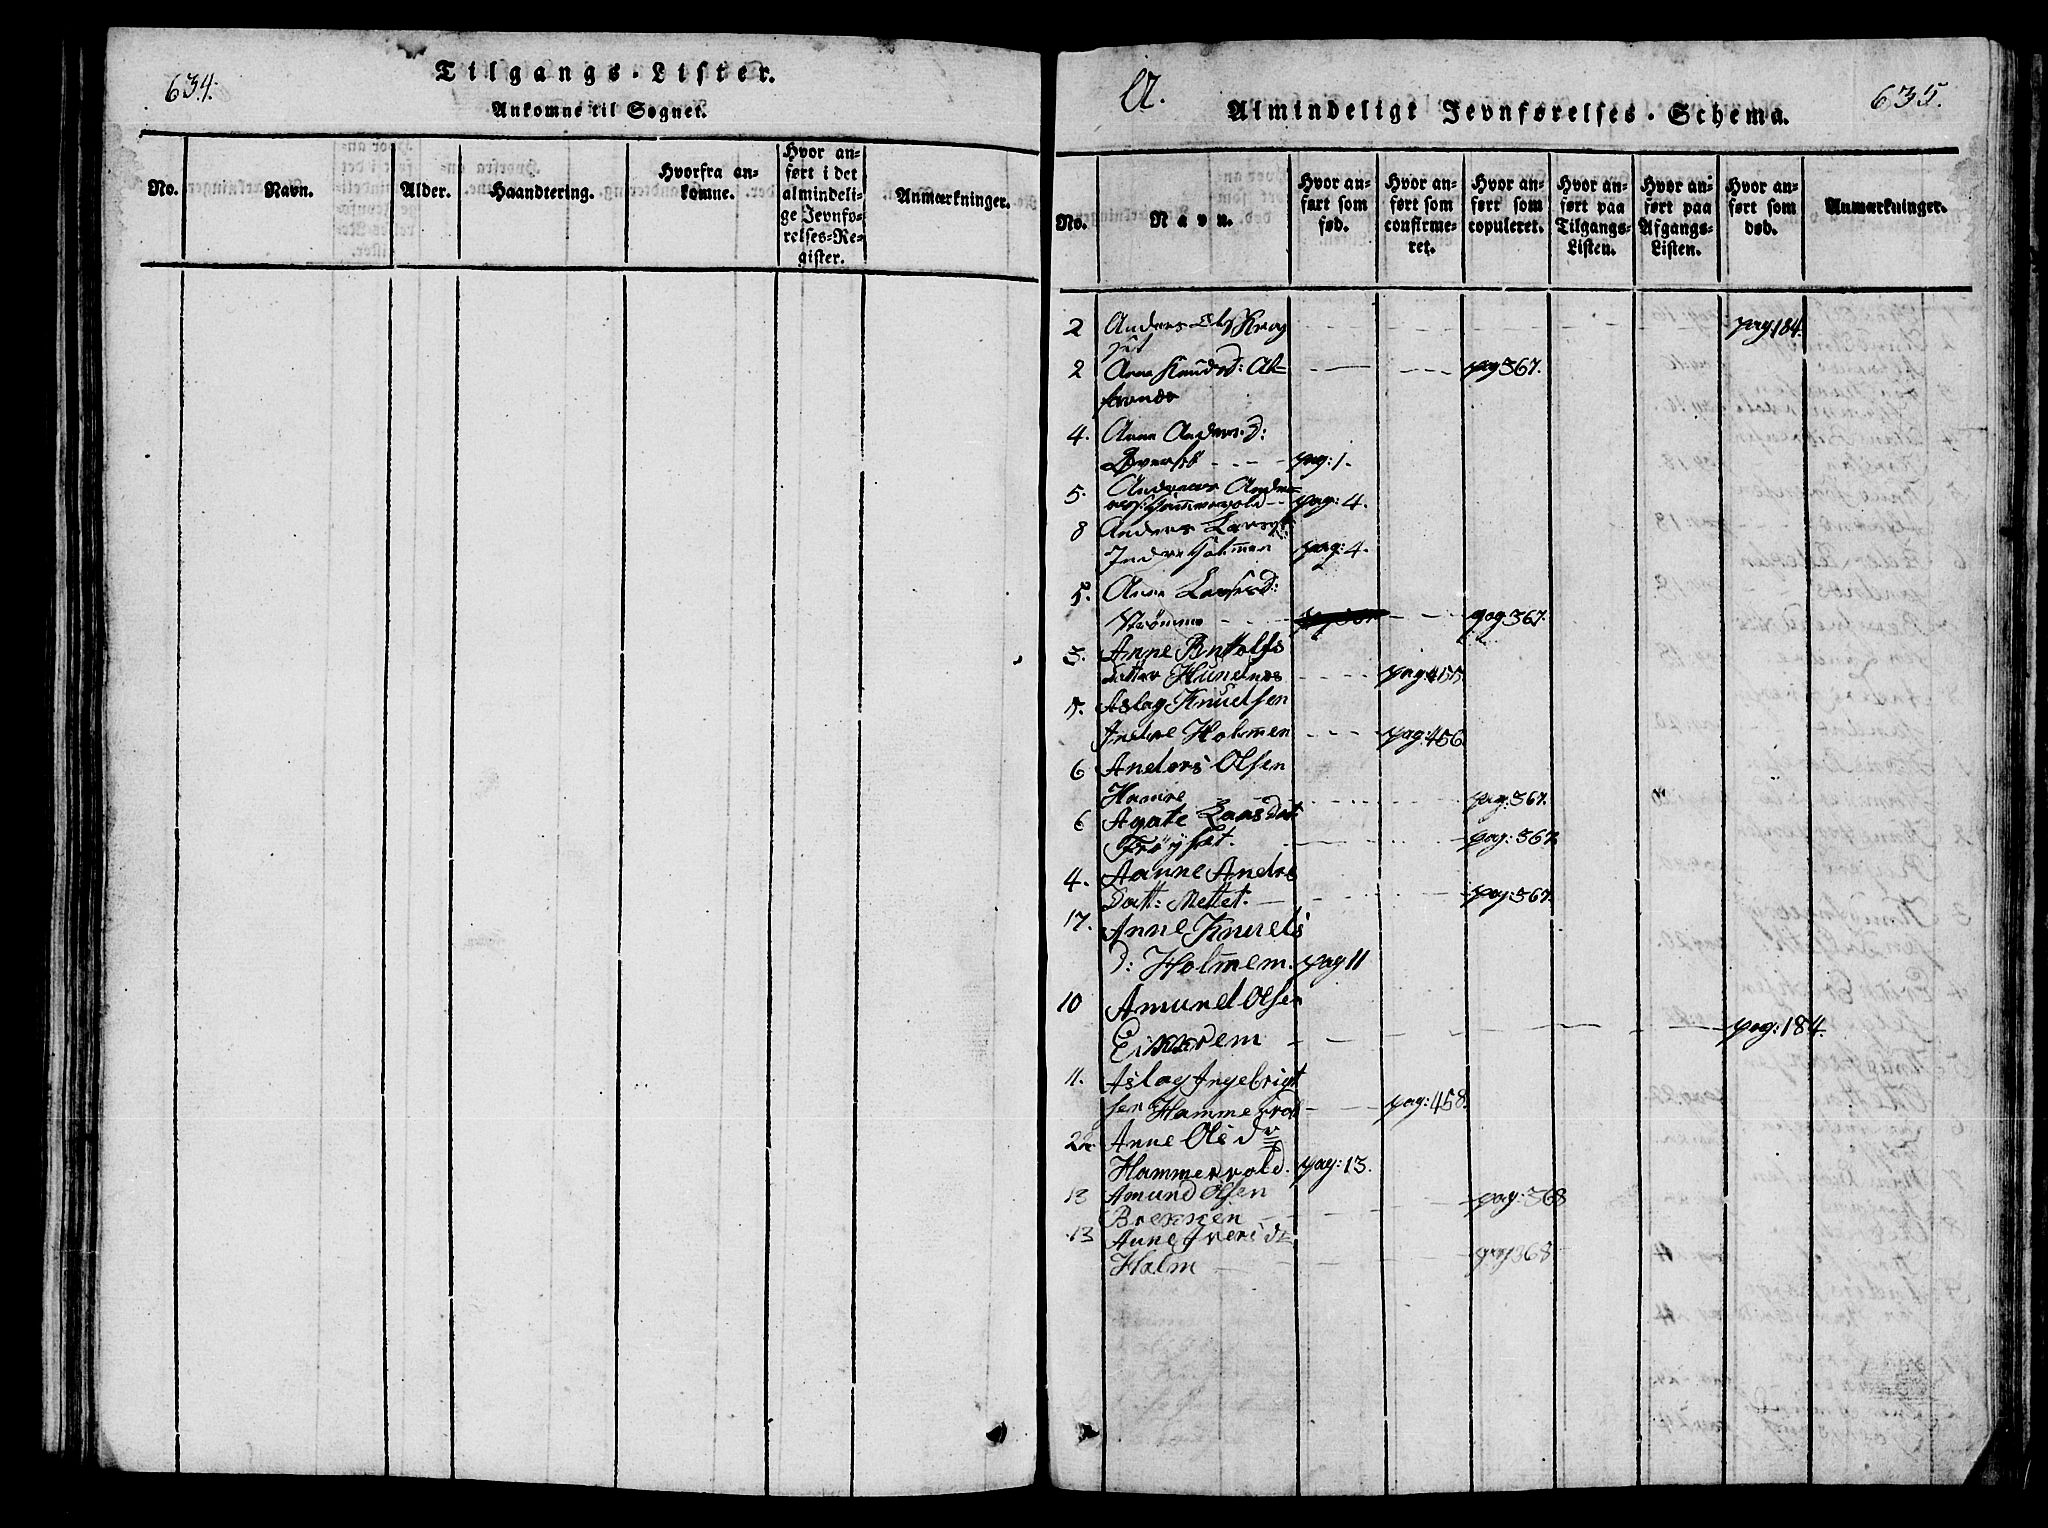 634.
Tilgangs-Lister.
Ankomne til Sognet.
No.
Navn.
Alder.
Haandtering.
Hvorfra an-
komne.
Hvor an-
ført i det
almindeli-
ge Jevnfø-
relses-Re-
gister.
Anmærkninger.
A.
Almindeligt Jevnførelses-Schema.
635.
No.
Navn.
Hvor an-
ført som
fød.
Hvor an-
ført som
confirme-
ret.
Hvor an-
ført som
copuleret.
Hvor an-
ført paa
Tilgangs-
Listen.
Hvor an-
ført paa
Afgangs-
Listen.
Hvor an-
ført som
død.
Anmærkninger.
2 Anders pag 184.
2 Anne Knudsd: pag 367.
4. Anne Anders. d:
pag: 1.
5. Andreas Andre
pag: 4.
8 Anders
Indre Holmen pag: 4.
5. Anne Larsesd:
Strömme pag 367.
3. Anne
Hundnes pag: 455
5. Aslag Knudsen
Indre Holmen pag: 456
6 Anders Olsen
pag: 367.
6 Agate Laasdat
Fröyset. pag: 367
4. Aanne Andrs
Datt: Mettet. pag: 367.
17. Anne Knuds
d: Holmem. pag 11
10 Amund Olsen
Eikrem pag: 184.
11. Aslag Ingebrigt
sen Hammervol pag: 458.
22 Anne Ols dr
Hammervold. pag: 13.
13 Amund Olsen
Brekken pag: 368
13 Anne Ivers dr
Holm pag 368